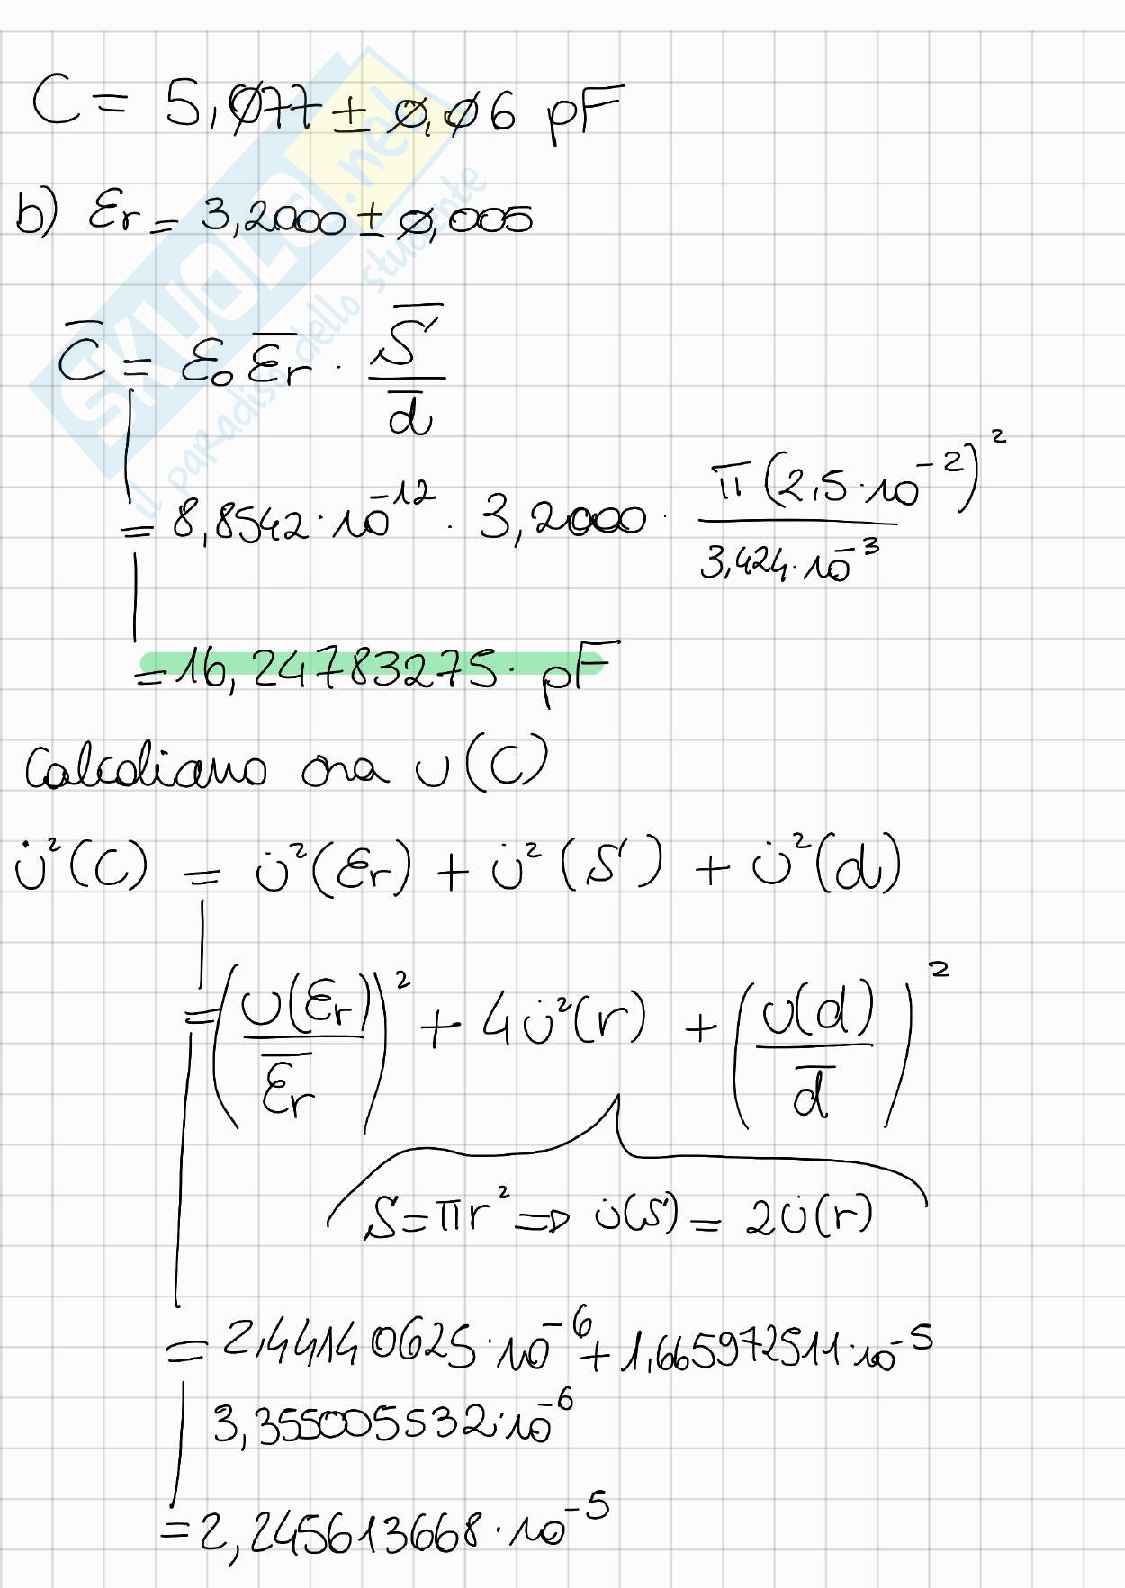 C = 5,077 ± 0,06 pF
b) εr = 3,2000 ± 0,005
C̅ = ε₀ ε̅r · S̅ / d̅
= 8,8542·10⁻¹² · 3,2000 · π(2,5·10⁻²)² / 3,424·10⁻³
= 16,24783275· pF
Calcoliamo ora u(C)
u̇²(C) = u̇²(εr) + u̇²(S) + u̇²(d)
= (u(εr) / ε̅r)² + 4u̇²(r) + (u(d) / d̅)²
S = πr² => u̇(S) = 2u̇(r)
= 2,44140625·10⁻⁶ + 1,665972511·10⁻⁵
3,355005532·10⁻⁶
= 2,245613668·10⁻⁵
SKUOLA.net
il paradiso dello studente